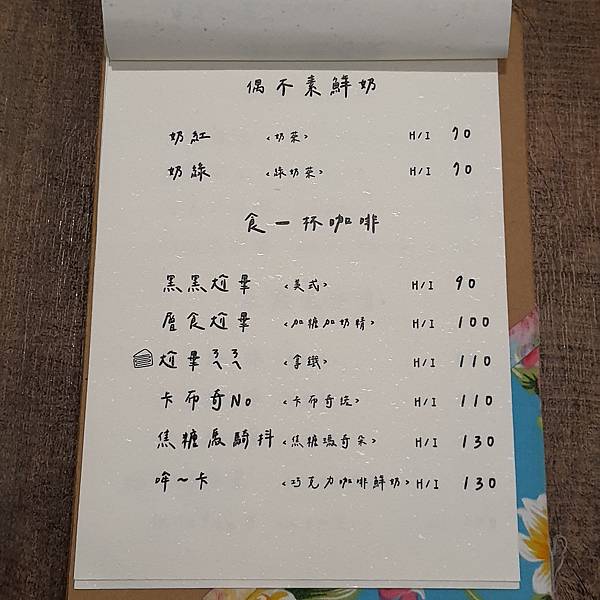 偶不素鮮奶
奶紅 <奶茶> H/I 70
奶綠 <綠奶茶> H/I 70
食一杯咖啡
黑黑尬畢 <美式> H/I 90
膚食尬畢 <加糖加奶精> H/I 100
尬畢ㄋㄟㄋㄟ <拿鐵> H/I 110
卡布奇No <卡布奇諾> H/I 110
焦糖馬騎抖 <焦糖瑪奇朵> H/I 130
哞~卡 <巧克力咖啡鮮奶> H/I 130